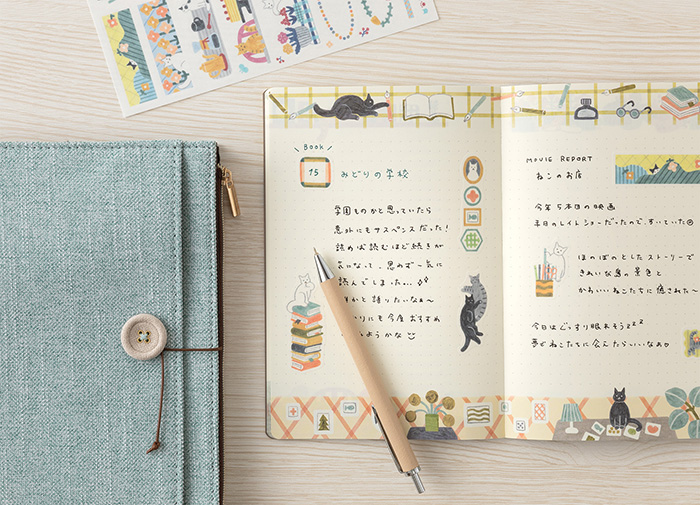 Book
15
みどりの学校
学園ものかと思っていたら
意外にもサスペンスだった！
読めば読むほど続きが
気になって、思わず一気に
読んでしまった…
かと語りたいな〜
りにも今度おすすめ
ようかな
MOVIE REPORT
ねこのお店
今年5本目の映画
平日のレイトショーだったので、すいていた
ほのぼのとしたストーリーで
きれいな島の景色と
かわいいねこたちに癒された〜
今日はぐっすり眠れそうzzz
夢でねこたちに会えたらいいなぁ